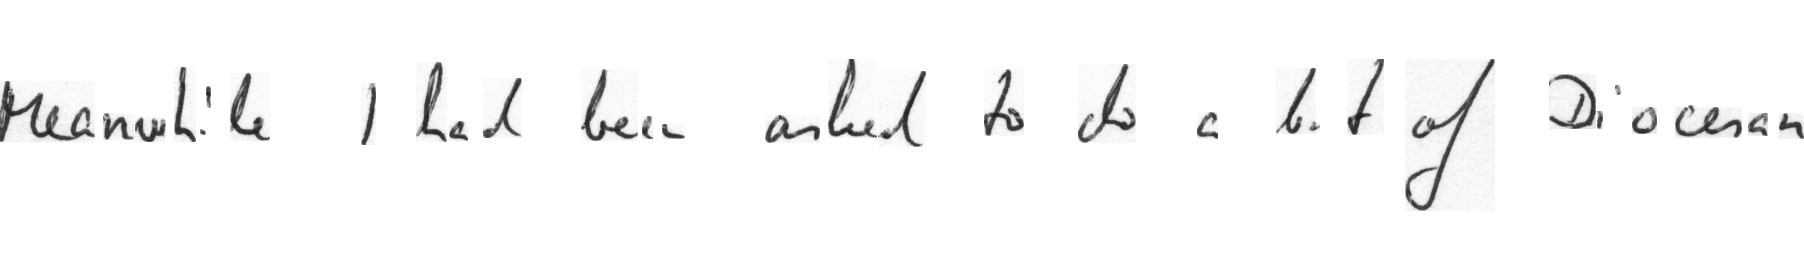 Meanwhile I had been asked to do a bit of Diocesan